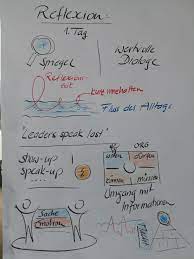 Reflexion:
1. Tag
Spiegel
wertvolle
Dialoge
Reflexion
tut
kurz innehalten
Fluss des Alltags
"Leaders speak last"
Show-up
Speak-up
ICH
ORG
wollen
dürfen
können
müssen
Umgang mit
Informationen
Sache
Emotion